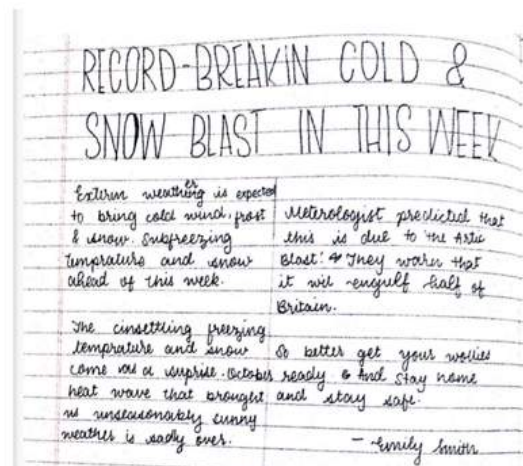 RECORD-BREAKIN COLD &
SNOW BLAST IN THIS WEEK
Exterm weather is expected
to bring cold wind, frost
& snow. Subfreezing
temprature and snow
ahead of this week.
The cinsettling freezing
temprature and snow
come as a suprise. October
heat wave that brought
us unseasonably sunny
weather is sadly over.
Meterologist predicted that
this is due to the Artic
Blast. They warn that
it wil engulf half of
Britain.
So better get your wollies
ready & And stay home
and stay safe.
- Emily Smith